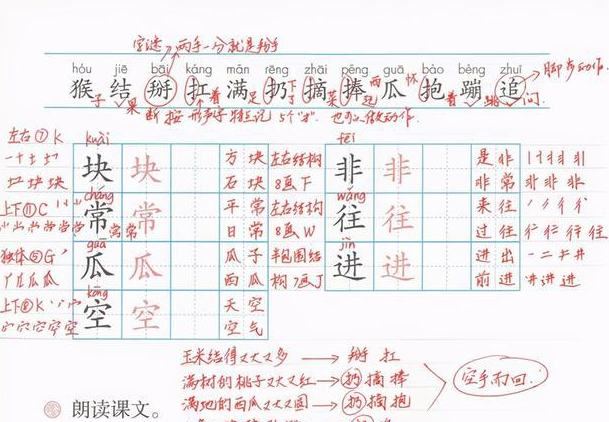 字谜→两手一分就是掰
hóu jiē bāi káng mǎn rēng zhāi pěng guā bào bèng zhuī
脚步动作.
猴 结 掰 扛 满 扔 摘 捧 瓜 抱 蹦 追
子 果 着 足 下 菜 起 西 怀 着 跳 问.
断 按 形声字特点记 5个"扌". 也可以做动作.
左右⑦K
kuài
块 块
方块
石块
左右结构
8画下
fēi
非 非
是非
非常
非 非 非
上下⑪C
cháng
常 常
常常
平常
日常
左右结构
8画W
wǎng
往 往
来往
过往
往 往
独体⑤G
guā
瓜 瓜
瓜子
西瓜
半包围结
构7画J
jìn
进 进
进出
前进
上下⑧K
kōng
空 空
天空
空气
玉米结得又大又多→掰 扛
满树的桃子又大又红→扔 摘 捧
满地的西瓜又大又圆→扔 摘 抱
空手而回.
朗读课文。